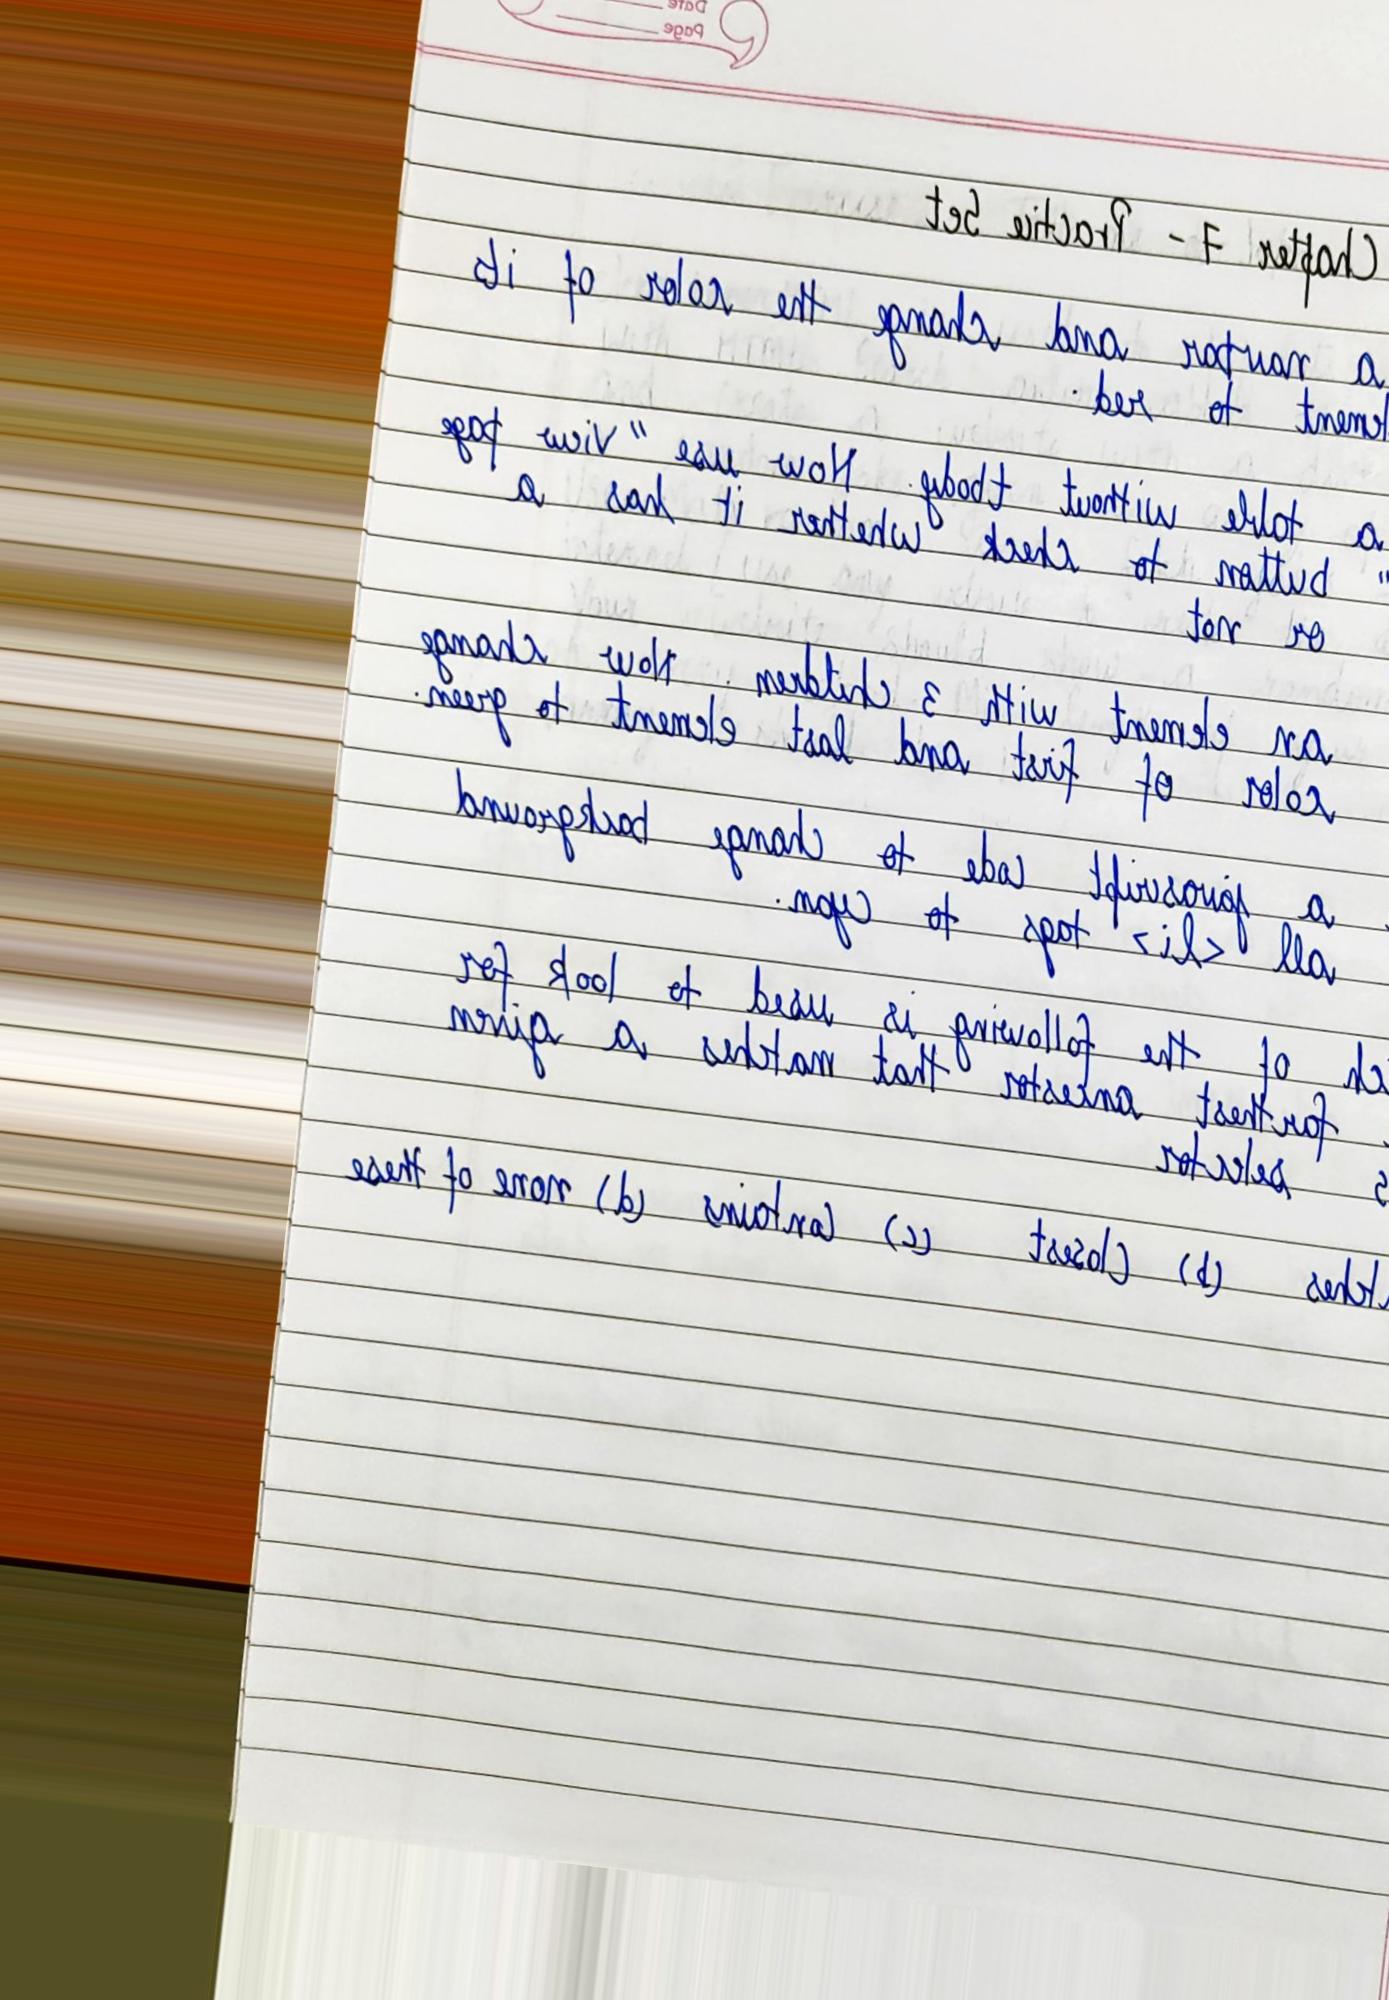 Date
Page
Chapter 7 - Practice Set
a navbar and change the color of its
element to red.
a table without tbody. Now use "View page
" button to check whether it has a
or not
an element with 3 children. Now change
color of first and last element to green.
a javascript code to change background
all <li> tags to cyan.
ch of the following is used to look for
farthest ancestor that matches a given
s selector
tches (b) Closest (c) Contains (d) none of these